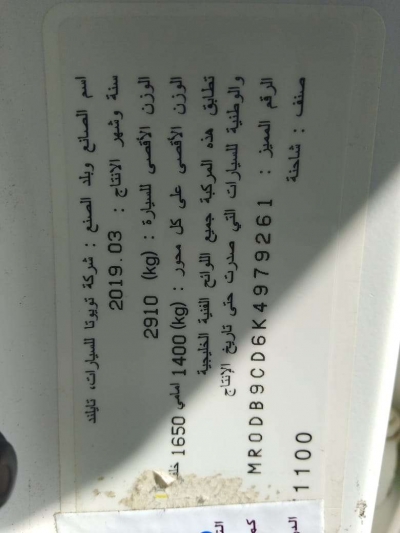 اسم الصانع وبلد الصنع : شركة تويوتا للسيارات، تايلند
سنة وشهر الانتاج : 2019.03
الوزن الأقصى للسيارة : 2910 (kg)
الوزن الأقصى على كل محور : 1400 (kg) امامي 1650 خلف
تطابق هذه المركبة جميع اللوائح الفنية الخليجية
والوطنية للسيارات التي صدرت حتى تاريخ الإنتاج
الرقم المميز : MR0DB9CD6K4979261
صنف : شاحنة 1100